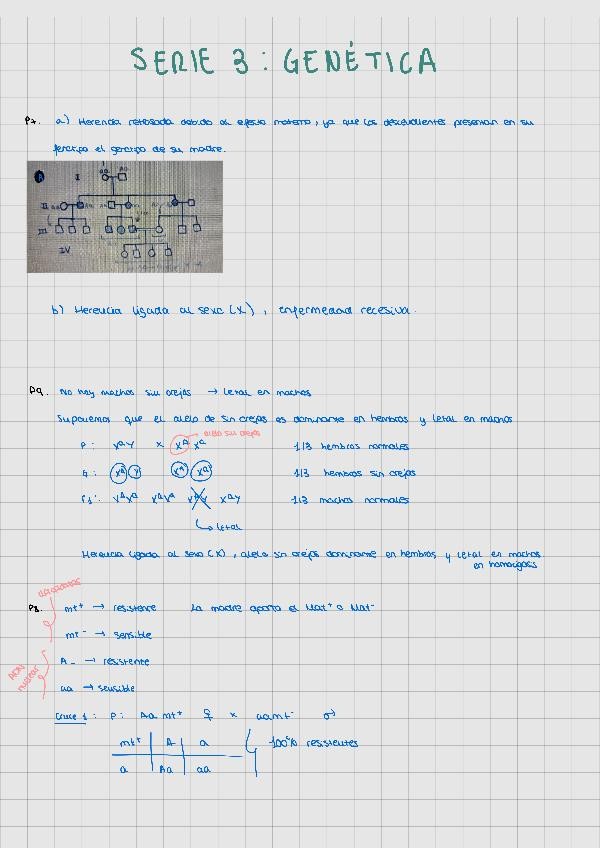 SERIE 3 : GENÉTICA
P7. a) Herencia retrasada debido al efecto materno, ya que los descendientes presentan en su
fenotipo el genotipo de su madre.
A I
II
III
IV
b) Herencia ligada al sexo (X), enfermedad recesiva.
P9. No hay machos sin orejas → letal en machos
Suponemos que el alelo de sin orejas es dominante en hembras y letal en machos
alelo sin orejas
P: XᵃY x Xᴬ Xᵃ 1/3 hembras normales
G: Xᵃ Y Xᴬ Xᵃ 1/3 hembras sin orejas
F1: XᴬXᵃ XᵃXᵃ XᴬY XᵃY 1/3 machos normales
↳ Letal
Herencia ligada al sexo (X), alelo sin orejas dominante en hembras y letal en machos
en homocigosis
P8. mt⁺ → resistente La madre aporta el Mat⁺ o Mat⁻
mt⁻ → sensible
A_ → resistente
ADN nuclear
aa → sensible
Cruce 1: P: Aa mt⁺ ♀ x aa mt⁻ ♂
mt⁺ A a 100% resistentes
a Aa aa